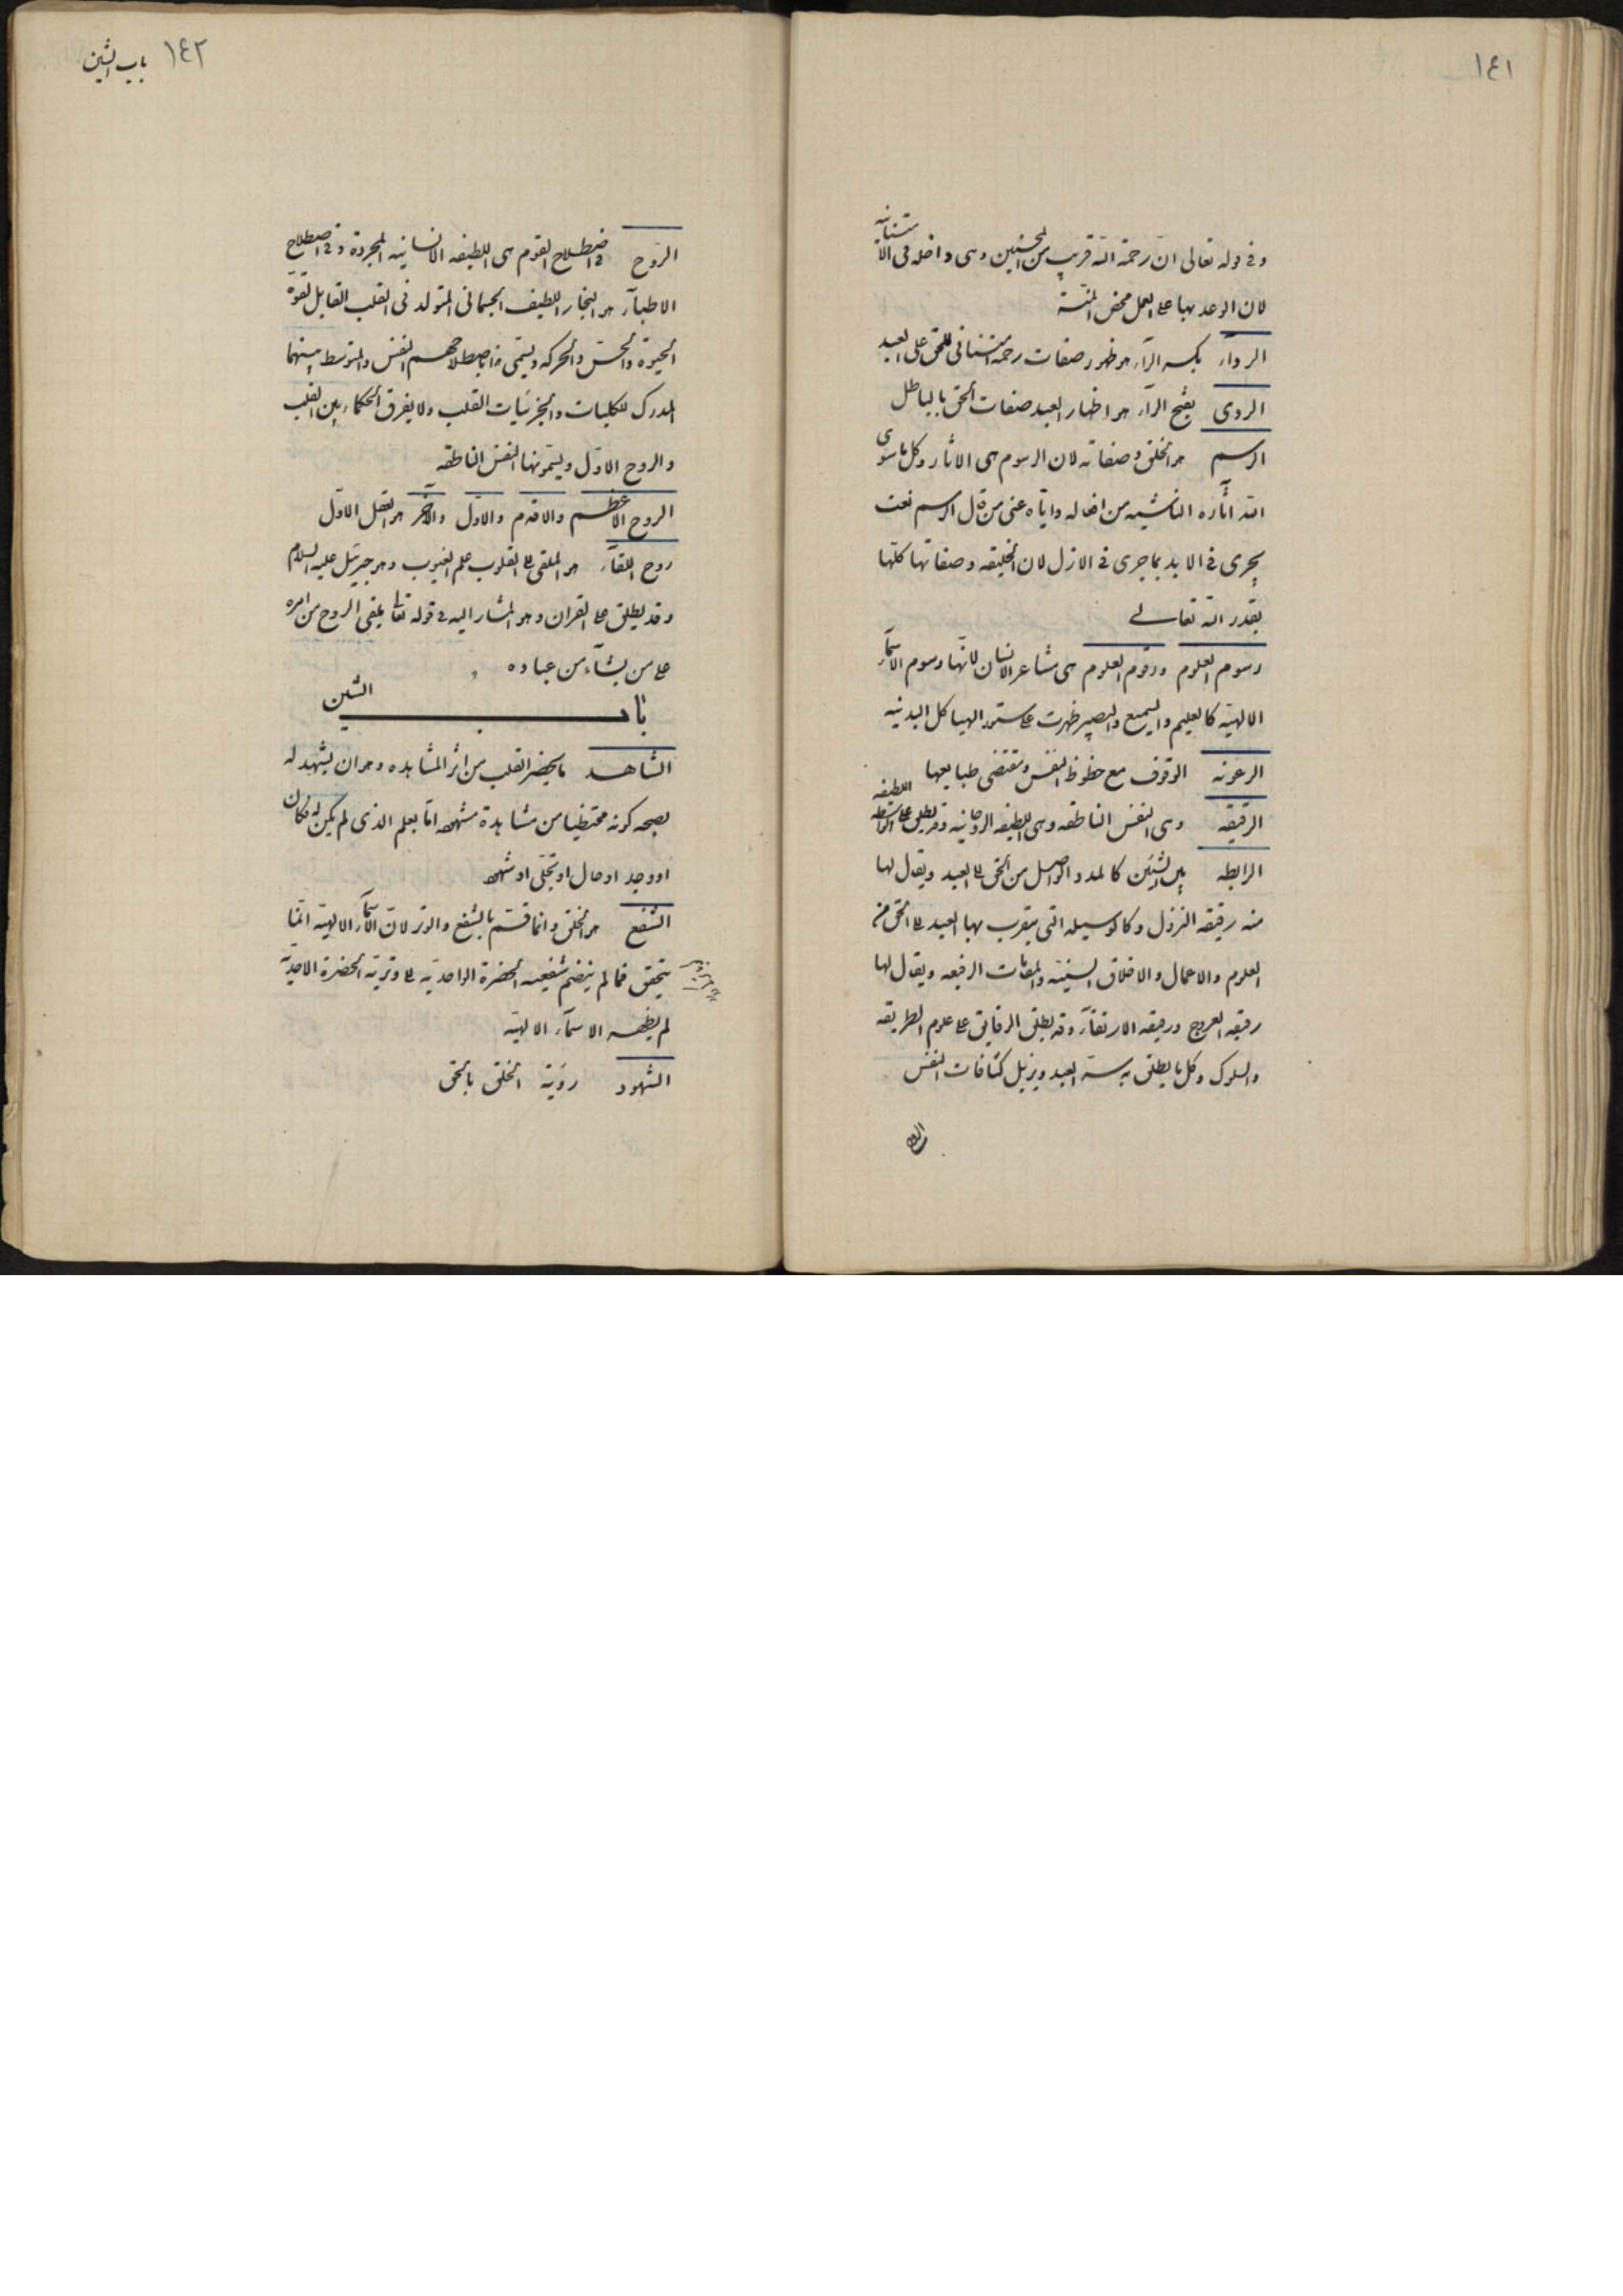 ١٤١
وفى قوله تعالى ان رحمة الله قريب من المحسنين وهى داخله فى الامتنانيه
لان الوعد بها على العمل محض المنّة
الرداء بكسر الرآء هو ظهور صفات رحمة امتنانى للحق على العبد
الردى بفتح الرآء هو اظهار العبد صفات الحق بالباطل
الرسم هو الخلق وصفاته لان الرسوم هى الاثار وكل ما سوى
الله آثاره الناشيه من افعاله واياه عنى من قال الرسم نعت
يجرى فى الابد بما جرى فى الازل لان الخليقه وصفاتها كلها
بقدر الله تعالى
رسوم العلوم ورقوم العلوم هى مشاعر الانسان لانها رسوم الاسمآء
الالهيّه كالعليم والسميع والبصير ظهرت على ستور الهياكل البدنيه
الرعونه الوقوف مع حظوظ النفس ومقتضى طبايعها
الرقيقه وهى النفس الناطقه وهى اللطيفه الروحانيه وقد يطلق على الواسطه اللطيفه
الرابطه بين الشيئين كالمدد الواصل من الحق الى العبد ويقال لها
منه رقيقه النزول وكالوسيله التى يتقرب بها العبد الى الحق من
العلوم والاعمال والاخلاق السنيّه والمقامات الرفيعه ويقال لها
رقيقه العروج ورقيقه الارتقآء وقد يطلق الرقايق على علوم الطريقه
والسلوك وكل ما يطلق به سر العبد ويزيل كثافات النفس
الروح
١٤٢ باب الشين
الرّوح فى اصطلاح القوم هى اللطيفه الانسانيه المجردة وفى اصطلاح
الاطبآء هو البخار اللطيف الجسمانى المتولد فى القلب القابل لقوّة
الحيوة والحسّ والحركه ويسمّى هذا باصطلاحهم النفس والمتوسط بينهما
المدرك للكليات والجزئيات القلب ولا يفرق الحكمآء بين القلب
والروح الاوّل ويسمّونها النفس الناطقه
الروح الاعظم والاقدم والاوّل والآخر هو العقل الاوّل
روح القآء هو الملقى الى القلوب علم الغيوب وهو جبرئيل عليه السلام
وقد يطلق على القران وهو المشار اليه فى قوله تعالى يلقى الروح من امره
على من يشآء من عباده
باب الشين
الشاهد ما يحضر القلب من اثر المشاهده وهو ان يشهد له
بصحه كونه محتظيا من مشاهدة مشهوده امّا بعلم الذى لم يكن له فكان
او وجد او حال او تجلّى او شهود
الشفع هو الخلق وانما قسم بالشفع والوتر لان الاسمآء الالهيّه انّما
يتحقق فما لم ينضم شفعيه الحضرة الواحديّه الى وتريّه الحضرة الاحديّه
لم يظهر الاسمآء الالهيّه
الشهود رؤية الخلق بالحق